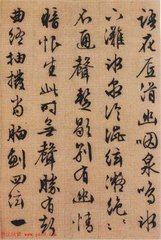 語花底滑幽咽泉流水
下灘水泉冷澀弦凝絕
不通聲暫歇別有幽情
暗恨生此時無聲勝有聲
曲終抽撥當胸劃四弦一